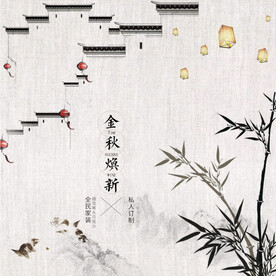 金秋焕新
私人订制
全民家装